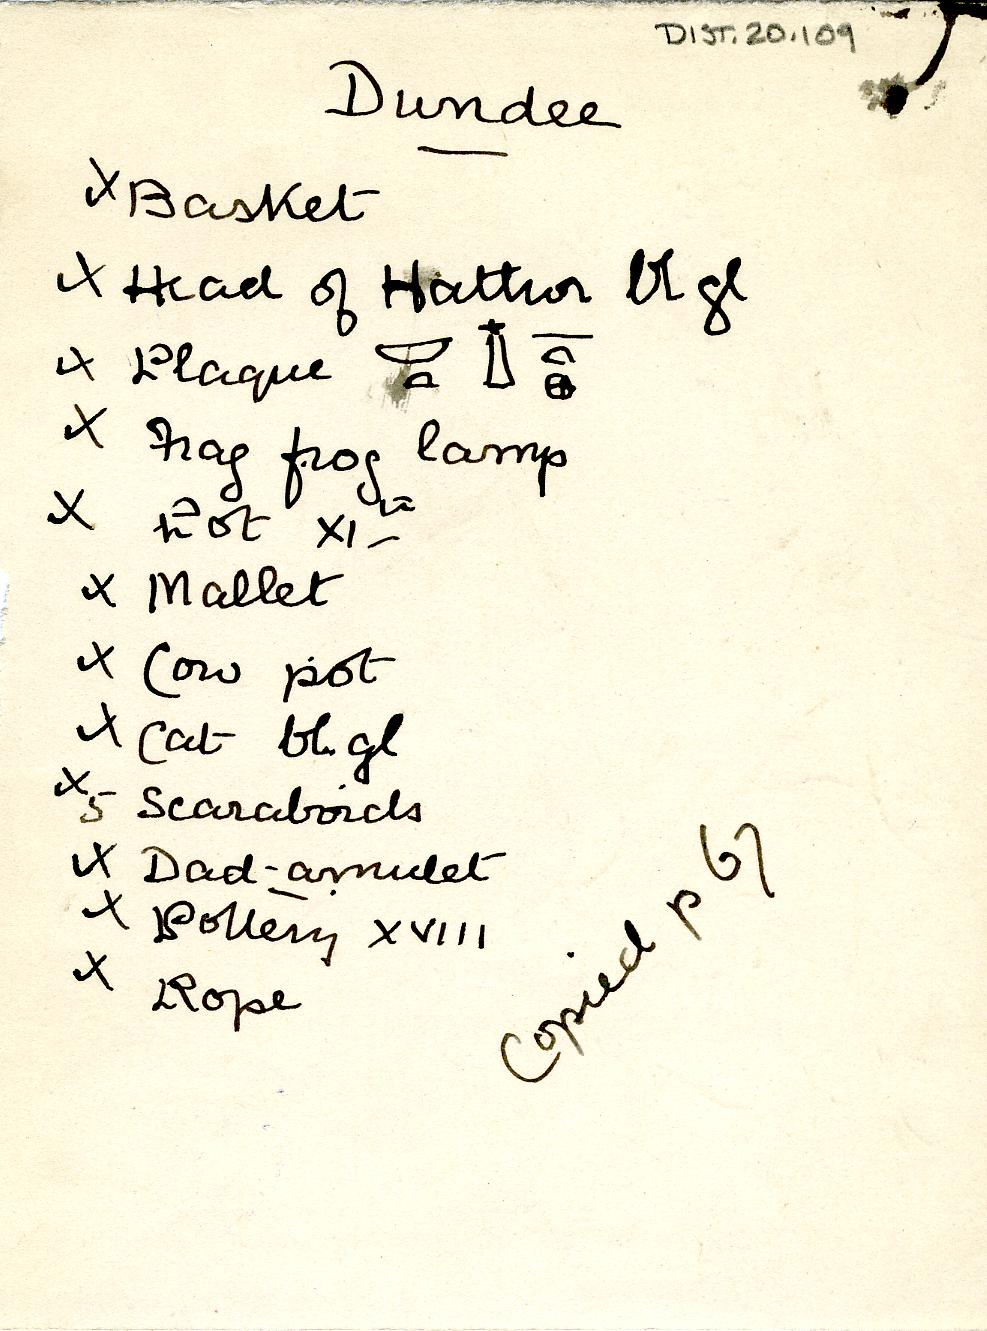 DIST.20.109
Dundee
x Basket
x Head of Hathor bl gl
x Plaque
x Frag frog lamp
x Pot XIth
x Mallet
x Cow pot
x Cat bl. gl
x 5 Scaraboids
x Dad-amulet
x Pottery XVIII
x Rope
Copied p 67